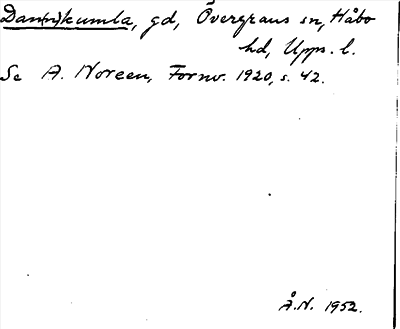 Dan(n)kumla, gd, Övergrans sn, Håbo
hd, Upps. l.
Se A. Noreen, Fornv. 1920, s. 42.
Å.N. 1952.